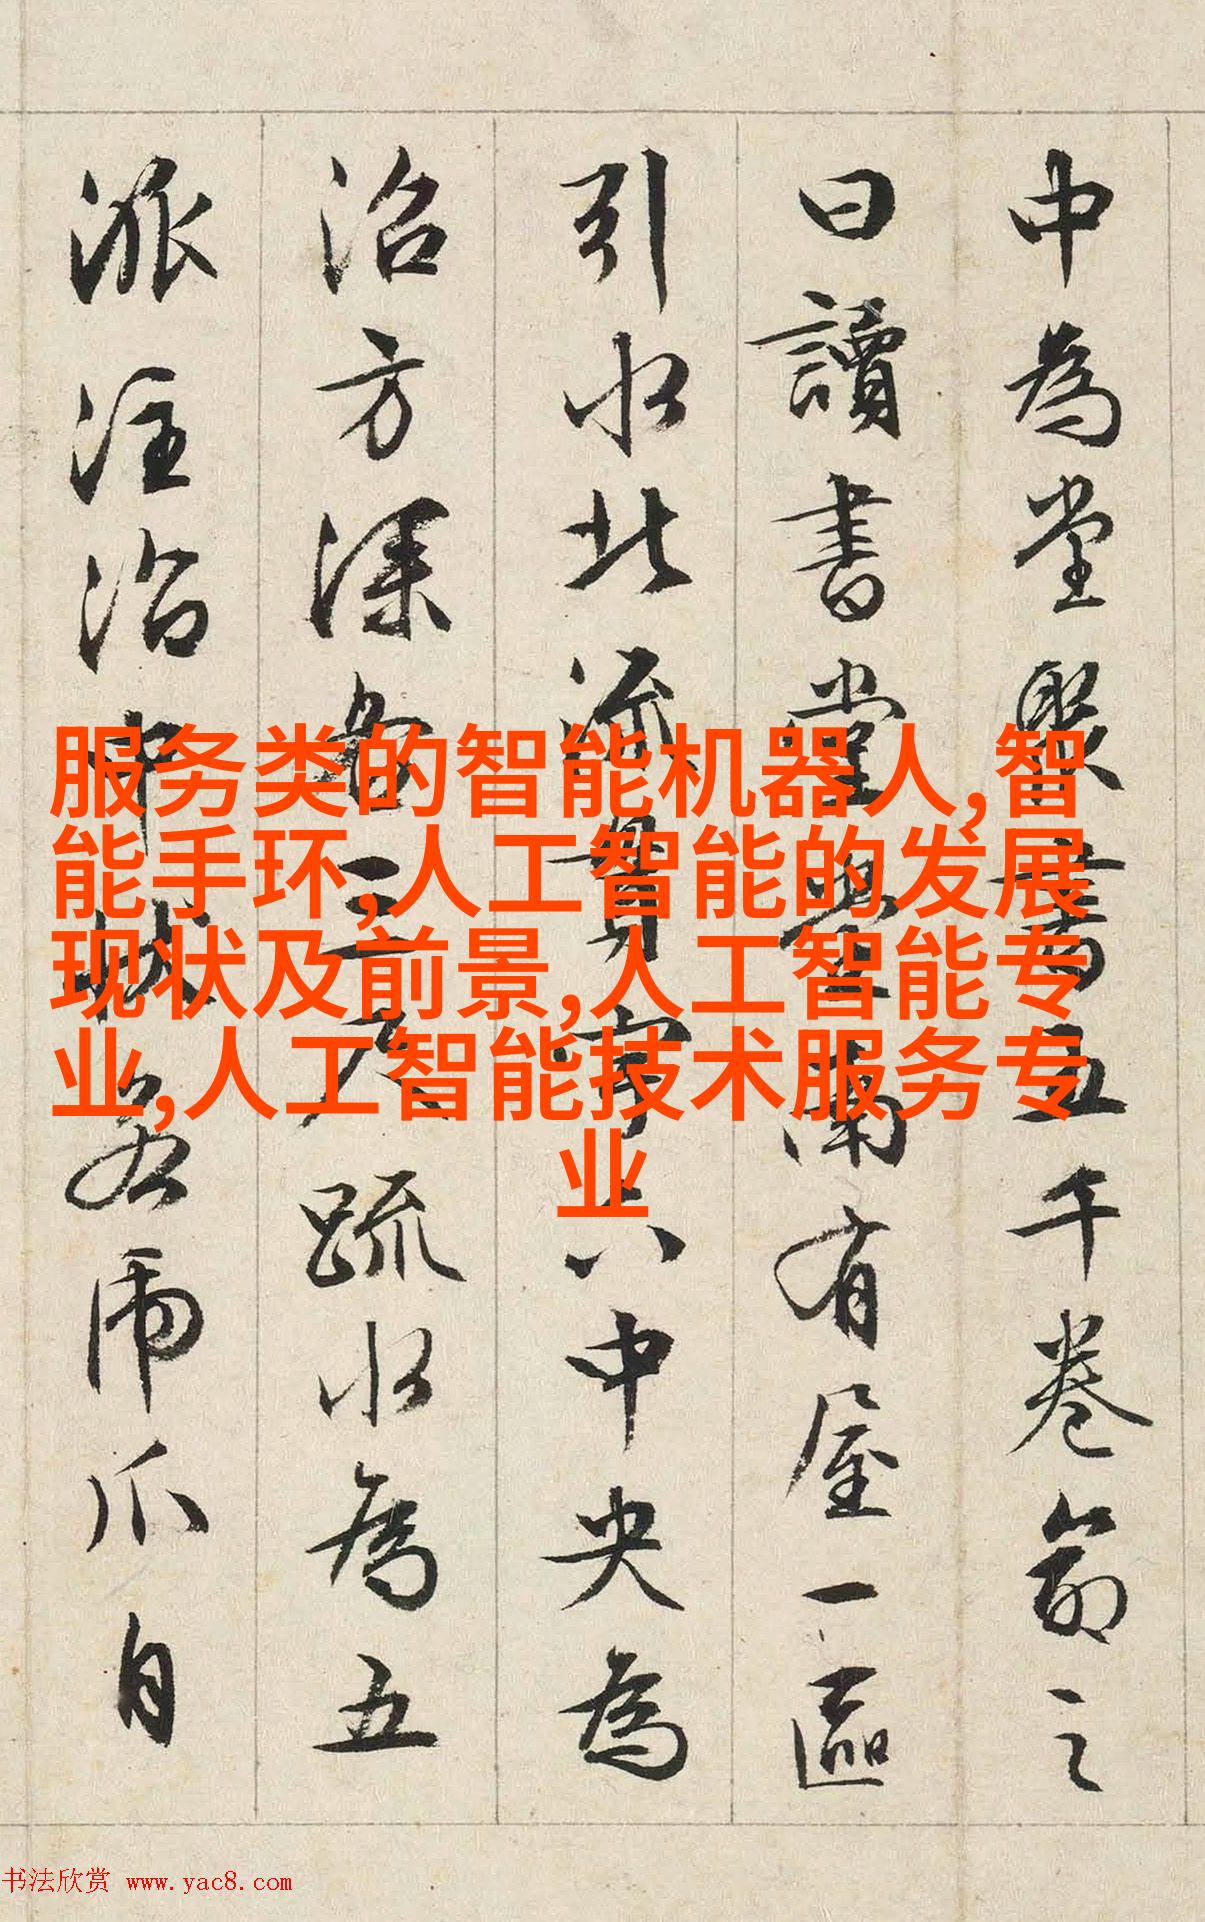 中為堂聚書五千卷命之
曰讀書堂堂南有屋一區
引水北流貫宇下中央為
沼方深各三尺疏水為五
派注沼中狀若虎爪自
服务类的智能机器人,智
能手环,人工智能的发展
现状及前景,人工智能专
业,人工智能技术服务专
业
书法欣赏 www.yac8.com